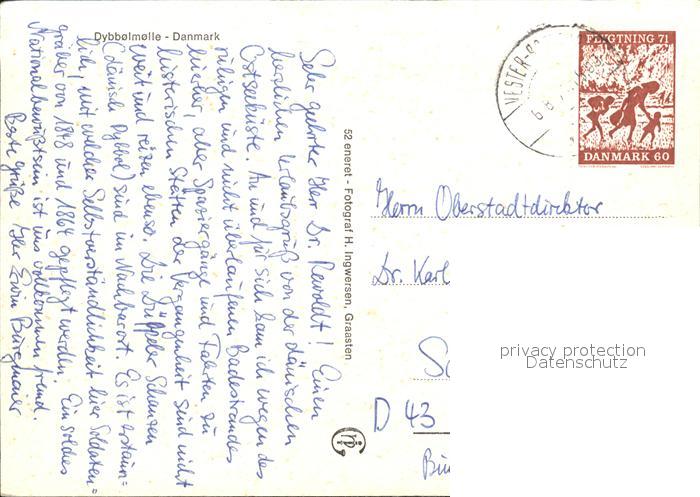 Dybbølmølle - Danmark
Sehr geehrter Herr Dr. Rewoldt! Einen
herzlichen Urlaubsgruß von der dänischen
Ostseeküste. An und für sich kam ich wegen des
ruhigen und nicht überlaufenen Badestrandes
hierher, aber Spaziergänge und Fahrten zu
historischen Stätten der Vergangenheit sind nicht
weit und reizen ebenso. Die Düppeler Schanzen
(dänisch Dybböl) sind im Nachbarort. Es ist erstaun=
lich, mit welcher Selbstverständlichkeit hier Soldaten=
gräber von 1848 und 1864 gepflegt werden. Ein solches
Nationalbewußtsein ist uns vollkommen fremd.
Beste Grüße Ihr Erwin
52 eneret - Fotograf H. Ingwersen, Graasten
VESTER-S
6.8.7
FLYGTNING 71
DANMARK 60
Herrn Oberstadtdirektor
Dr. Karl
D 43
privacy protection
Datenschutz